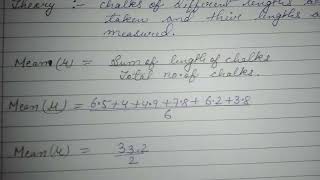 Theory :- chalks of different lengths are
taken and their lengths a
measured.
Mean (μ) = Sum of length of chalks
Total no. of chalks.
Mean (μ) = 6.5+4+4.9+7.8+6.2+3.8
6
Mean (μ) = 33.2
2